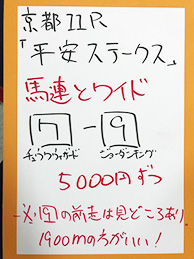 京都11R
「平安ステークス」
馬連とワイド
7-9
チュウワウィザード ジョーダンキング
5000円ずつ
※9の前走は見どころあり。
1900mの方がいい!